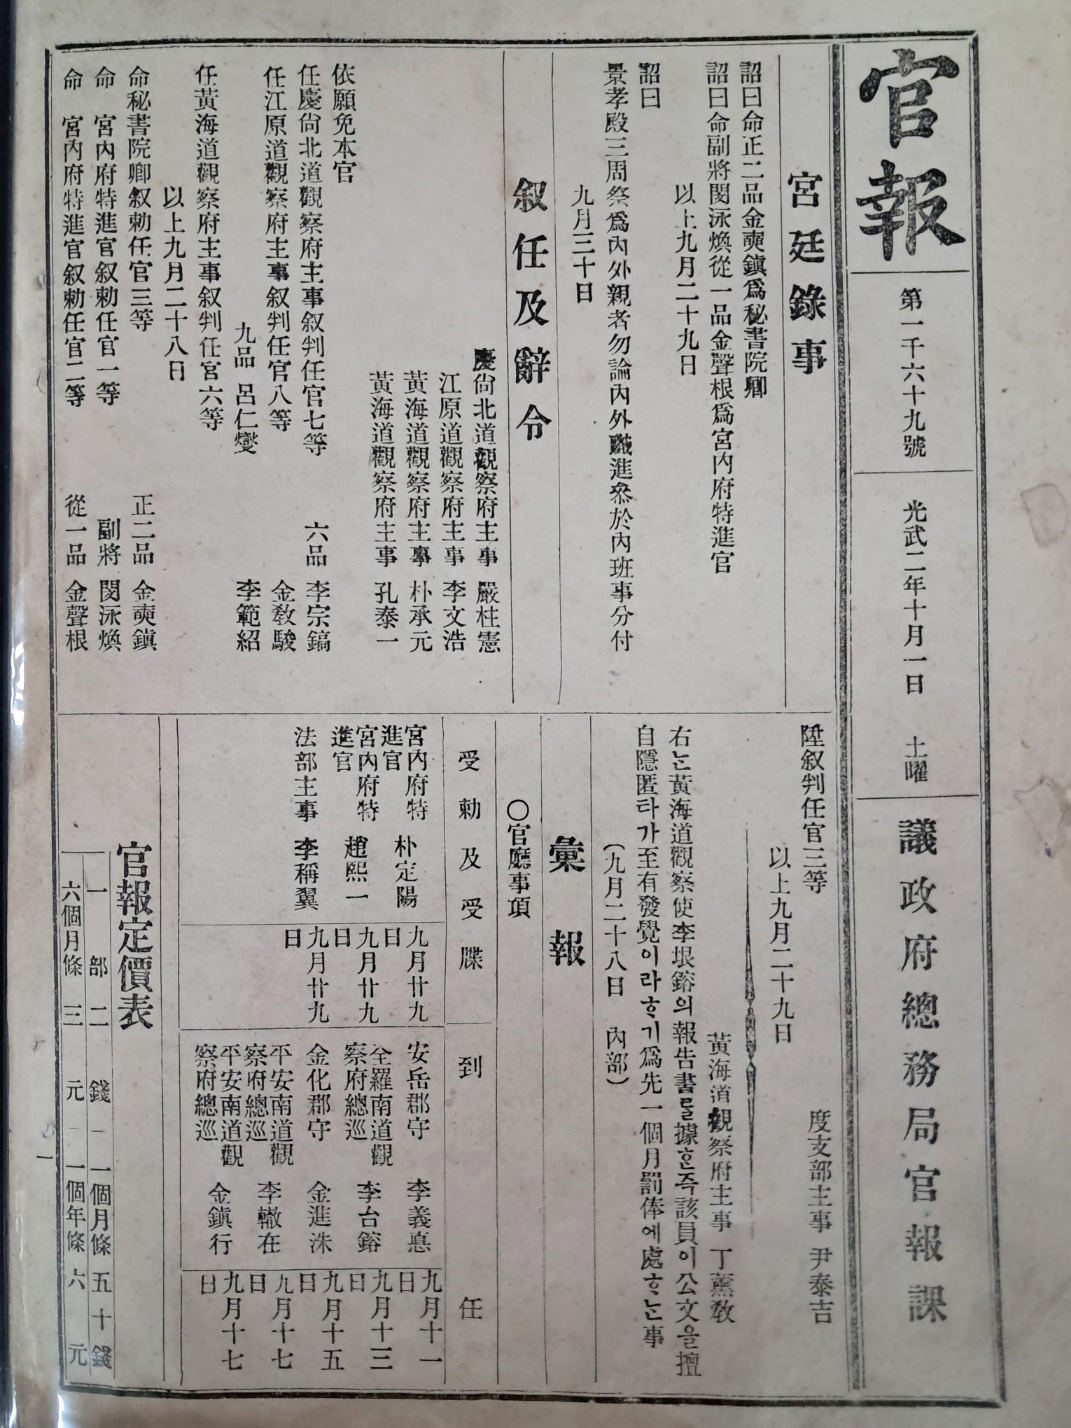 官報
第一千六十九號
光武二年十月一日 土曜
議政府總務局官報課
宮廷錄事
詔曰命正二品金奭鎭爲秘書院卿
詔曰命副將閔泳煥從一品金聲根爲宮內府特進官
以上九月二十九日
詔曰
景孝殿三周祭爲內外親者勿論內外職進參於內班事分付
九月三十日
叙任及辭令
慶尙北道觀察府主事 嚴柱憲
江原道觀察府主事 李文浩
黃海道觀察府主事 朴承元
黃海道觀察府主事 孔泰一
依願免本官
任慶尙北道觀察府主事叙判任官七等 六品 李宗鎬
任江原道觀察府主事叙判任官八等 金敎駿
九品 呂仁燮 李範紹
任黃海道觀察府主事叙判任官六等
以上九月二十八日
命秘書院卿叙勅任官三等 正二品 金奭鎭
命 宮內府特進官叙勅任官一等 副將 閔泳煥
命 宮內府特進官叙勅任官二等 從一品 金聲根
陞叙判任官三等 度支部主事 尹泰吉
以上九月二十九日
黃海道觀察府主事 丁薰敎
右는黃海道觀察使李垠鎔의報告書를據흔즉該員이公文을擅
自隱匿타가至有發覺이라ᄒᆞ기爲先一個月罰俸에處ᄒᆞ는事
(九月二十八日 內部)
彙報
○官廳事項
受勅及受牒 到任
宮內府特進官 朴定陽 九月廿九日
宮內府特進官 趙熙一 九月廿九日
法部主事 李稱翼 九月廿九日
安岳郡守 李義悳 九月十一日
全羅南道觀察府總巡 李台鎔 九月十三日
金化郡守 金進洙 九月十五日
平安南道觀察府總巡 李轍在 九月十七日
平安南道觀察府總巡 金鎭行 九月十七日
官報定價表
一部 二錢 一個月條 五十錢
六個月條 三元 一個年條 六元
一